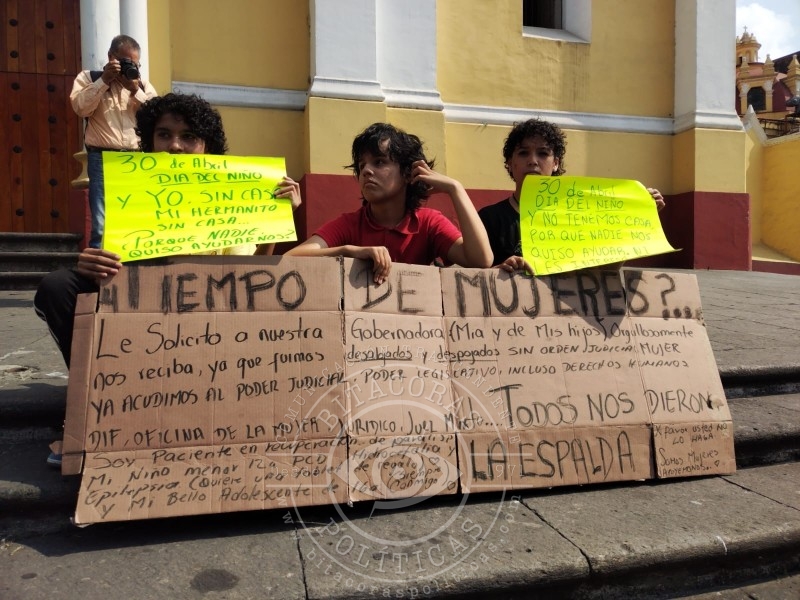 30 Abril
DIA DEL NIÑO
Y YO, SIN CASA
MI HERMANITO
SIN CASA.
¿PORQUE NADIE
QUISO AYUDARNOS?
30 de Abril.
DIA DEL NIÑO
Y NO TENEMOS CASA,
POR QUE NADIE
QUISO AYUDAR. NI
¿TIEMPO DE MUJERES?...
Le Solicito a nuestra Gobernadora (Mia y de Mis hijos) Orgullosamente
nos reciba, ya que fuimos desalojados y despojados SIN ORDEN JUDICIAL, MUJER
YA ACUDIMOS AL PODER JUDICIAL, PODER LEGISLATIVO, INCLUSO DERECHOS HUMANOS
DIF, OFICINA DE LA MUJER, JURIDICO, ... TODOS NOS DIERON
LA ESPALDA
Soy Paciente en recuperación de
Mi Niño menor 12a.
Epilepsia (Quiere una
Y Mi Bello Adolescente de
X favor usted NO
LO HAGA
SOMOS MUJERES
BITÁCORAS
POLÍTICAS